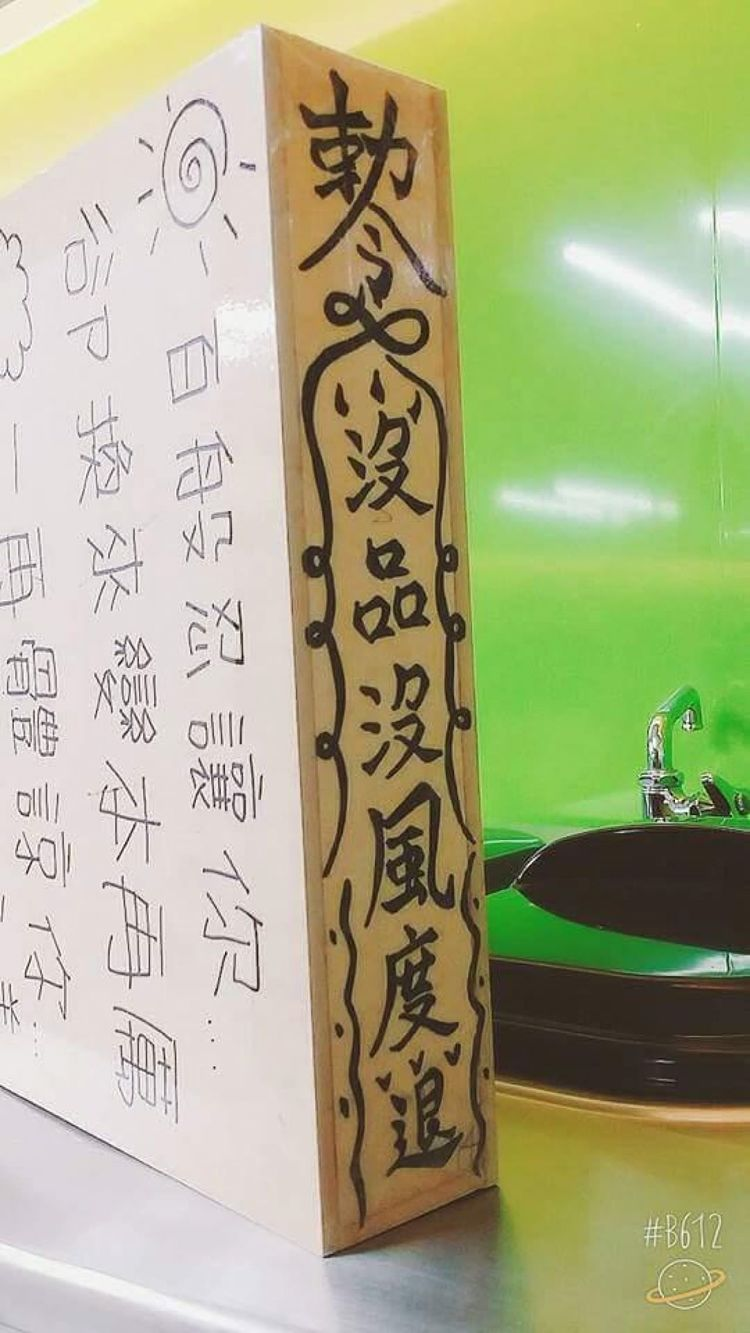 勅令沒品沒風度退
百般忍讓你...
卻換來變本再厲
一再體諒你...
#B612